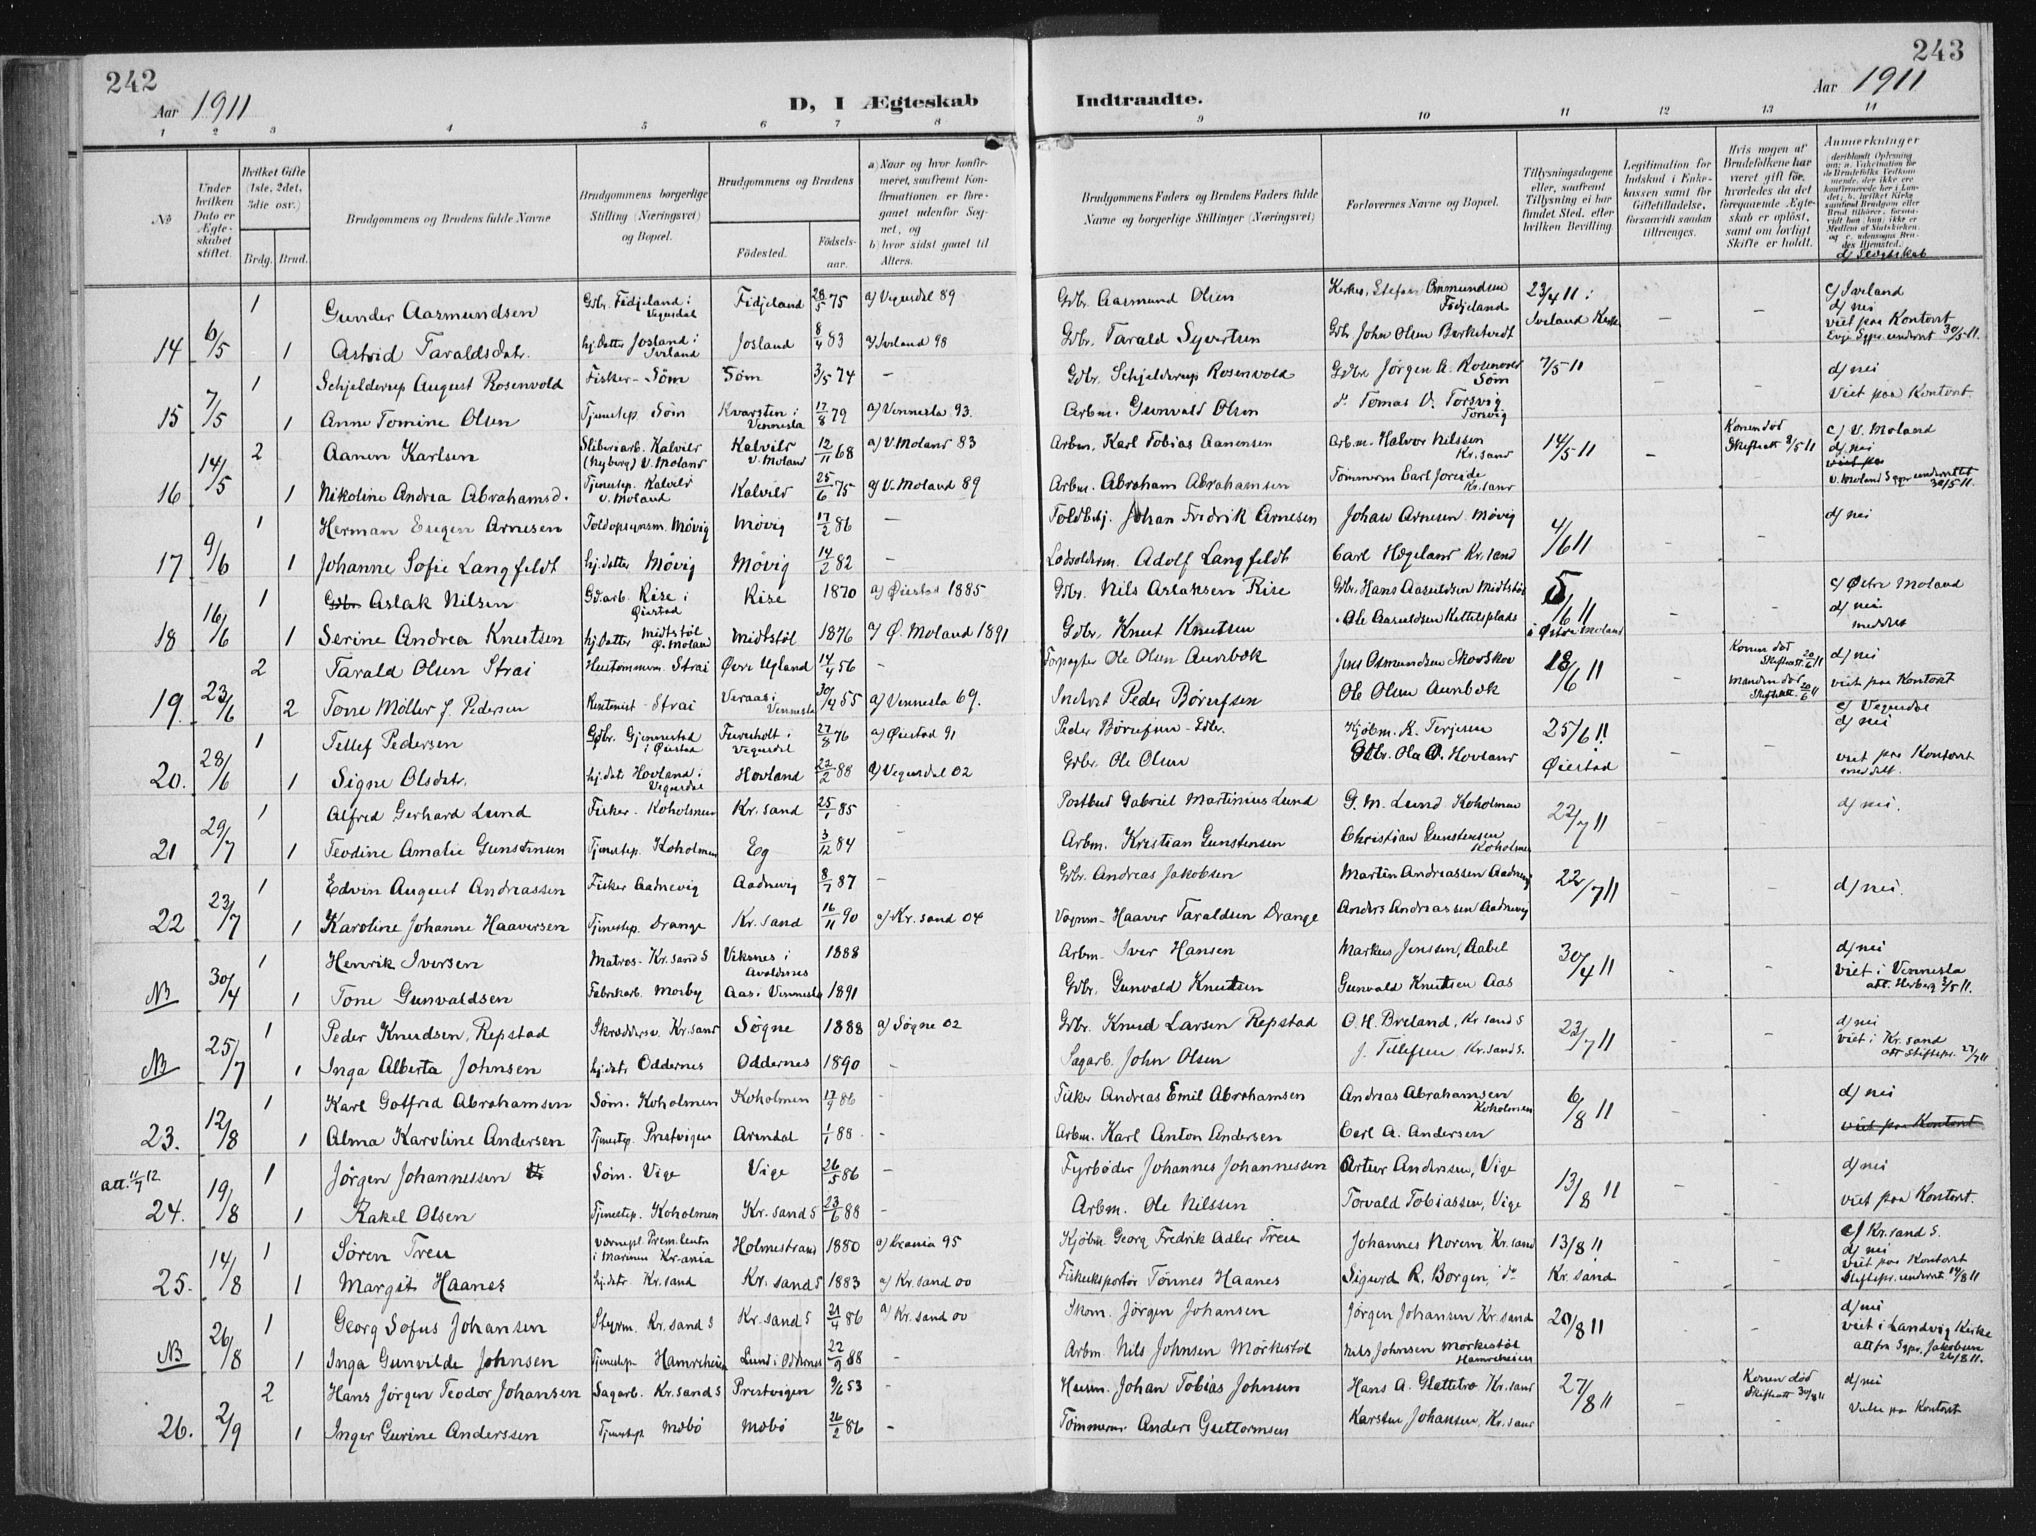 242
Aar 1911
D, I Ægteskab
Indtraadte.
243
Aar 1911
1 2 3 4 5 6 7 8 9 10 11 12 13 14
No
Under hvilken Dato er Ægteskabet stiftet.
Hvilket Gifte (1ste, 2det, 3die osv.)
Brdg. Brud.
Brudgommens og Brudens fulde Navne
Brudgommens borgerlige Stilling (Næringsvei) og Bopæl.
Brudgommens og Brudens
Fødested.
Fødsels-aar.
a) Naar og hvor konfirmeret, saafremt Konfirmationen er foregaaet udenfor Sognet, og
b) hvor sidst gaaet til Alters.
Brudgommens Faders og Brudens Faders fulde Navne og borgerlige Stillinger (Næringsvei)
Forlovernes Navne og Bopæl.
Tillysningsdagene eller, saafremt Tillysning ei har fundet Sted, efter hvilken Bevilling.
Legitimation for Indskud i Enkekassen samt for Giftetilladelse, forsaavidt saadan tiltrænges.
Hvis nogen af Brudefolkene har været gift før, hvorledes da det foregaaende Ægteskab er opløst, samt om lovligt Skifte er holdt.
Anmerkninger
d) Slegtskab
1 Gunder Aasmundsen Gbr. Fidjeland i Vegusdal Fidjeland 28/5 75 a) Vegusdal 89 Gbr. Aasmund Olsen Kirkes. Stefan Ommundsen Fidjeland 23/4 11 i c) Iveland d) nei
14 6/5 1 Astrid Taraldsdatr. hj. datter Josland i Iveland Josland 8/4 83 a) Iveland 98 Gbr. Tarald Syvertsen Gbr John Olsen Birketvedt Iveland Kirke viet paa Kontoret Evje Sgpr. underret 30/5 11.
1 Schjelderup August Rosenvold Fisker - Søm Søm 3/5 74 - Gbr. Schjelderup Rosenvold Gbr Jørgen A. Rosenvold Søm 7/5 11 - - d) nei
15 7/5 1 Anne Tomine Olsen Tjenestep. Søm Kvarsten i Vennesla 17/8 79 a) Vennesla 93. Arbm. Gunvald Olsen do Tomas V. Torsvig Torsvig Viet paa Kontoret.
2 Aanen Karlsen Sliberiarb. Kalvild (Nyberg) V. Moland Kalvild V. Moland 12/11 68 a) V. Moland 83 Arbm. Karl Tobias Aanensen Arb.m. Halvor Nilssen Kr.sand 14/5 11 - Konen død Skifteatt 8/5 11 c) V. Moland d) nei viet paa
16 14/5 1 Nikoline Andrea Abrahamsd. Tjenestep. Kalvild V. Moland Kalvild 25/6 75 a) V. Moland 89 Arbm. Abraham Abrahamsen Tømmerm Carl Kr.sand V. Moland Sgpr underrettet 30/5 11.
1 Herman Eugen Arnesen Toldopsynsm. Møvig Møvig 17/2 86 - Toldbetj. Johan Fredrik Arnesen Johan Arnesen Møvig 4/6 11 - - d) nei
17 9/6 1 Johanne Sofie Langfeldt hj. datter Møvig Møvig 14/2 82 Lodsolderm. Adolf Langfeldt Carl Hægeland Kr.sand
1 Gbr Aslak Nilsen Gdarb. Rise i Øiestad Rise 1870 a) Øiestad 1885 Gbr. Nils Aslaksen Rise Gbr. Hans Aanundsen Midtstøl 5/6 11 - - c) Østre Moland d) nei
18 16/6 1 Serine Andrea Knutsen hj. datter Midtstøl Ø. Moland Midtstøl 1876 a) Ø. Moland 1891 Gbr. Knut Knutsen Ole Aanundsen Kittelsplads i Østre Moland meddelt
2 Tarald Olsen Strai Hustømmerm. Strai Øvre Usland 14/4 56 - Forpagter Ole Olsen Aurebæk Jens Osmundsen Skovskov 18/6 11 Konen død Skifteatt. 20/6 11 d) nei
19 23/6 2 Tone Møller f. Pedersen Rentenist - Strai Veraas i Vennesla 30/4 55 a) Vennesla 69. Inderst Peder Børufsen Ole Olsen Aurebæk Manden død Skifteatt. 20/6 11 viet paa Kontoret
1 Tellef Pedersen Gbr. Gjennestad i Øiestad i Vegusdal 27/8 76 a) Øiestad 91 Peder Børufsen - Gbr. Kjøbm. K. Terjesen 25/6 11 c) Vegusdal d) nei
20. 28/6 1 Signe Olsdatr. hj. datr Hovland i Vegusdal Hovland 22/2 88 a) Vegusdal 02 Gbr. Ole Olsen Gbr. Ola O. Hovland Øiestad - - viet paa Kontoret meddelt.
1 Alfred Gerhard Lund Fisker - Koholmen Kr.sand 25/1 85 - Postbud Gabriel Martinius Lund G. M. Lund Koholmen 22/7 11 - - d) nei.
21 29/7 1 Teodine Amalie Gunstensen Tjenestep. Koholmen Eg 3/12 84 - Arbm. Kristian Gunstensen Christian Gunstensen Koholmen
1 Edvin August Andreassen Fisker Aadnevig Aadnevig 8/7 87 - Gbr. Andreas Jakobsen Martin Andreassen Aadnevig 22/7 11 - - d) nei.
22 23/7 1 Karoline Johanne Haaversen Tjenestep. Drange Kr.sand 16/11 90 a) Kr.sand 04 Vognm- Haaver Taraldsen Drange Anders Andreassen Aadnevig
1 Henrik Iversen Matros - Kr.sand S Viksnes i Avaldsnes 1888 Arbm. Iver Hansen Markus Jenssen, Aabel 30/4 11 - - d) nei viet i Vennesla
NB 30/4 1 Tone Gunvaldsen Fabrikarb. Mosby Aas i Vennesla 1891 Gbr. Gunvald Knutsen Gunvald Knutsen Aas att. Herberg 3/5 11.
1 Peder Knudsen, Repstad Skræddersv. Kr.sand Søgne 1888 a) Søgne 02 Gbr. Knud Larsen Repstad O. H. Breland, Kr sand S 23/7 11 - - d) nei viet i Kr.sand
NB 25/7 1 Inga Alberta Johnsen hj. datr Oddernes Oddernes 1890 - Sagarb. John Olsen J. Tellefsen Kr.sand S. att Stiftspr. 27/7 11
1 Karl Gotfred Abrahamsen Søm. Koholmen Koholmen 17/9 86 - Fisker Andreas Emil Abrahamsen Andreas Abrahamsen Koholmen 6/8 11 - - d) nei
23. 12/8 1 Alma Karoline Andersen Tjenestep. Prestvigen Arendal 1/1 88 - Arbm. Karl Anton Andersen Carl A. Andersen viet paa Kontoret
att. 11/7 12 1 Jørgen Johannessen Søm. Vige Vige 26/5 86 - Fyrbøder Johannes Johannessen Artur Andersen, Vige 13/8 11 - - d) nei
24. 19/8 1 Rakel Olsen Tjenestep. Koholmen Kr.sand S 23/6 88 - Arbm. Ole Nilssen Torvald Tobiassen, Vige viet paa Kontoret.
1 Søren Treu Vernepl. Prem.leutn i Marinen Kr.ania Holmestrand 1880 a) Krania 95 Kjøbm Georg Fredrik Adler Treu Johannes Norem Kr.sand 13/8 11 c) Kr.sand S. d) nei
25. 14/8 1 Margit Haanes hj. datr. Kr.sand Kr.sand S 1883 a) Kr.sand 00 Fiskeeksportør Tønnes Haanes Sigurd R. Borgen, do Kr.sand - - viet paa Kontoret Stiftspr. underret. 14/8 11
1 Georg Sofus Johansen Styrm. Kr.sand S Kr.sand S 21/4 86 a) Kr.sand 00 Skom. Jørgen Johansen Jørgen Johansen Kr.sand 20/8 11 - - d) nei viet i Landvig Kirke
NB 26/8 1 Inga Gunvilde Johnsen Tjenestep Hamreheien Lund i Oddernes 22/9 88 - Arbm. Nils Johnsen Mørkestøl Nils Johnsen Mørkestøl Hamreheien att fra Sgpr. Jakobsen 26/8 11.
2 Hans Jørgen Teodor Johansen Sagarb. Kr.sand S Prestvigen 9/6 53 - Husm. Johan Tobias Johnsen Hans A. Glattetre Kr.sand 27/8 11 - Konen død Skifteatt 30/8 11 d) nei
26. 2/9 1 Inger Gurine Anderssen Tjenestep Mæbø Mæbø 26/2 86 - Tømmerm. Anders Guttormsen Karsten Johansen, Kr.sand - Viet paa Kontoret